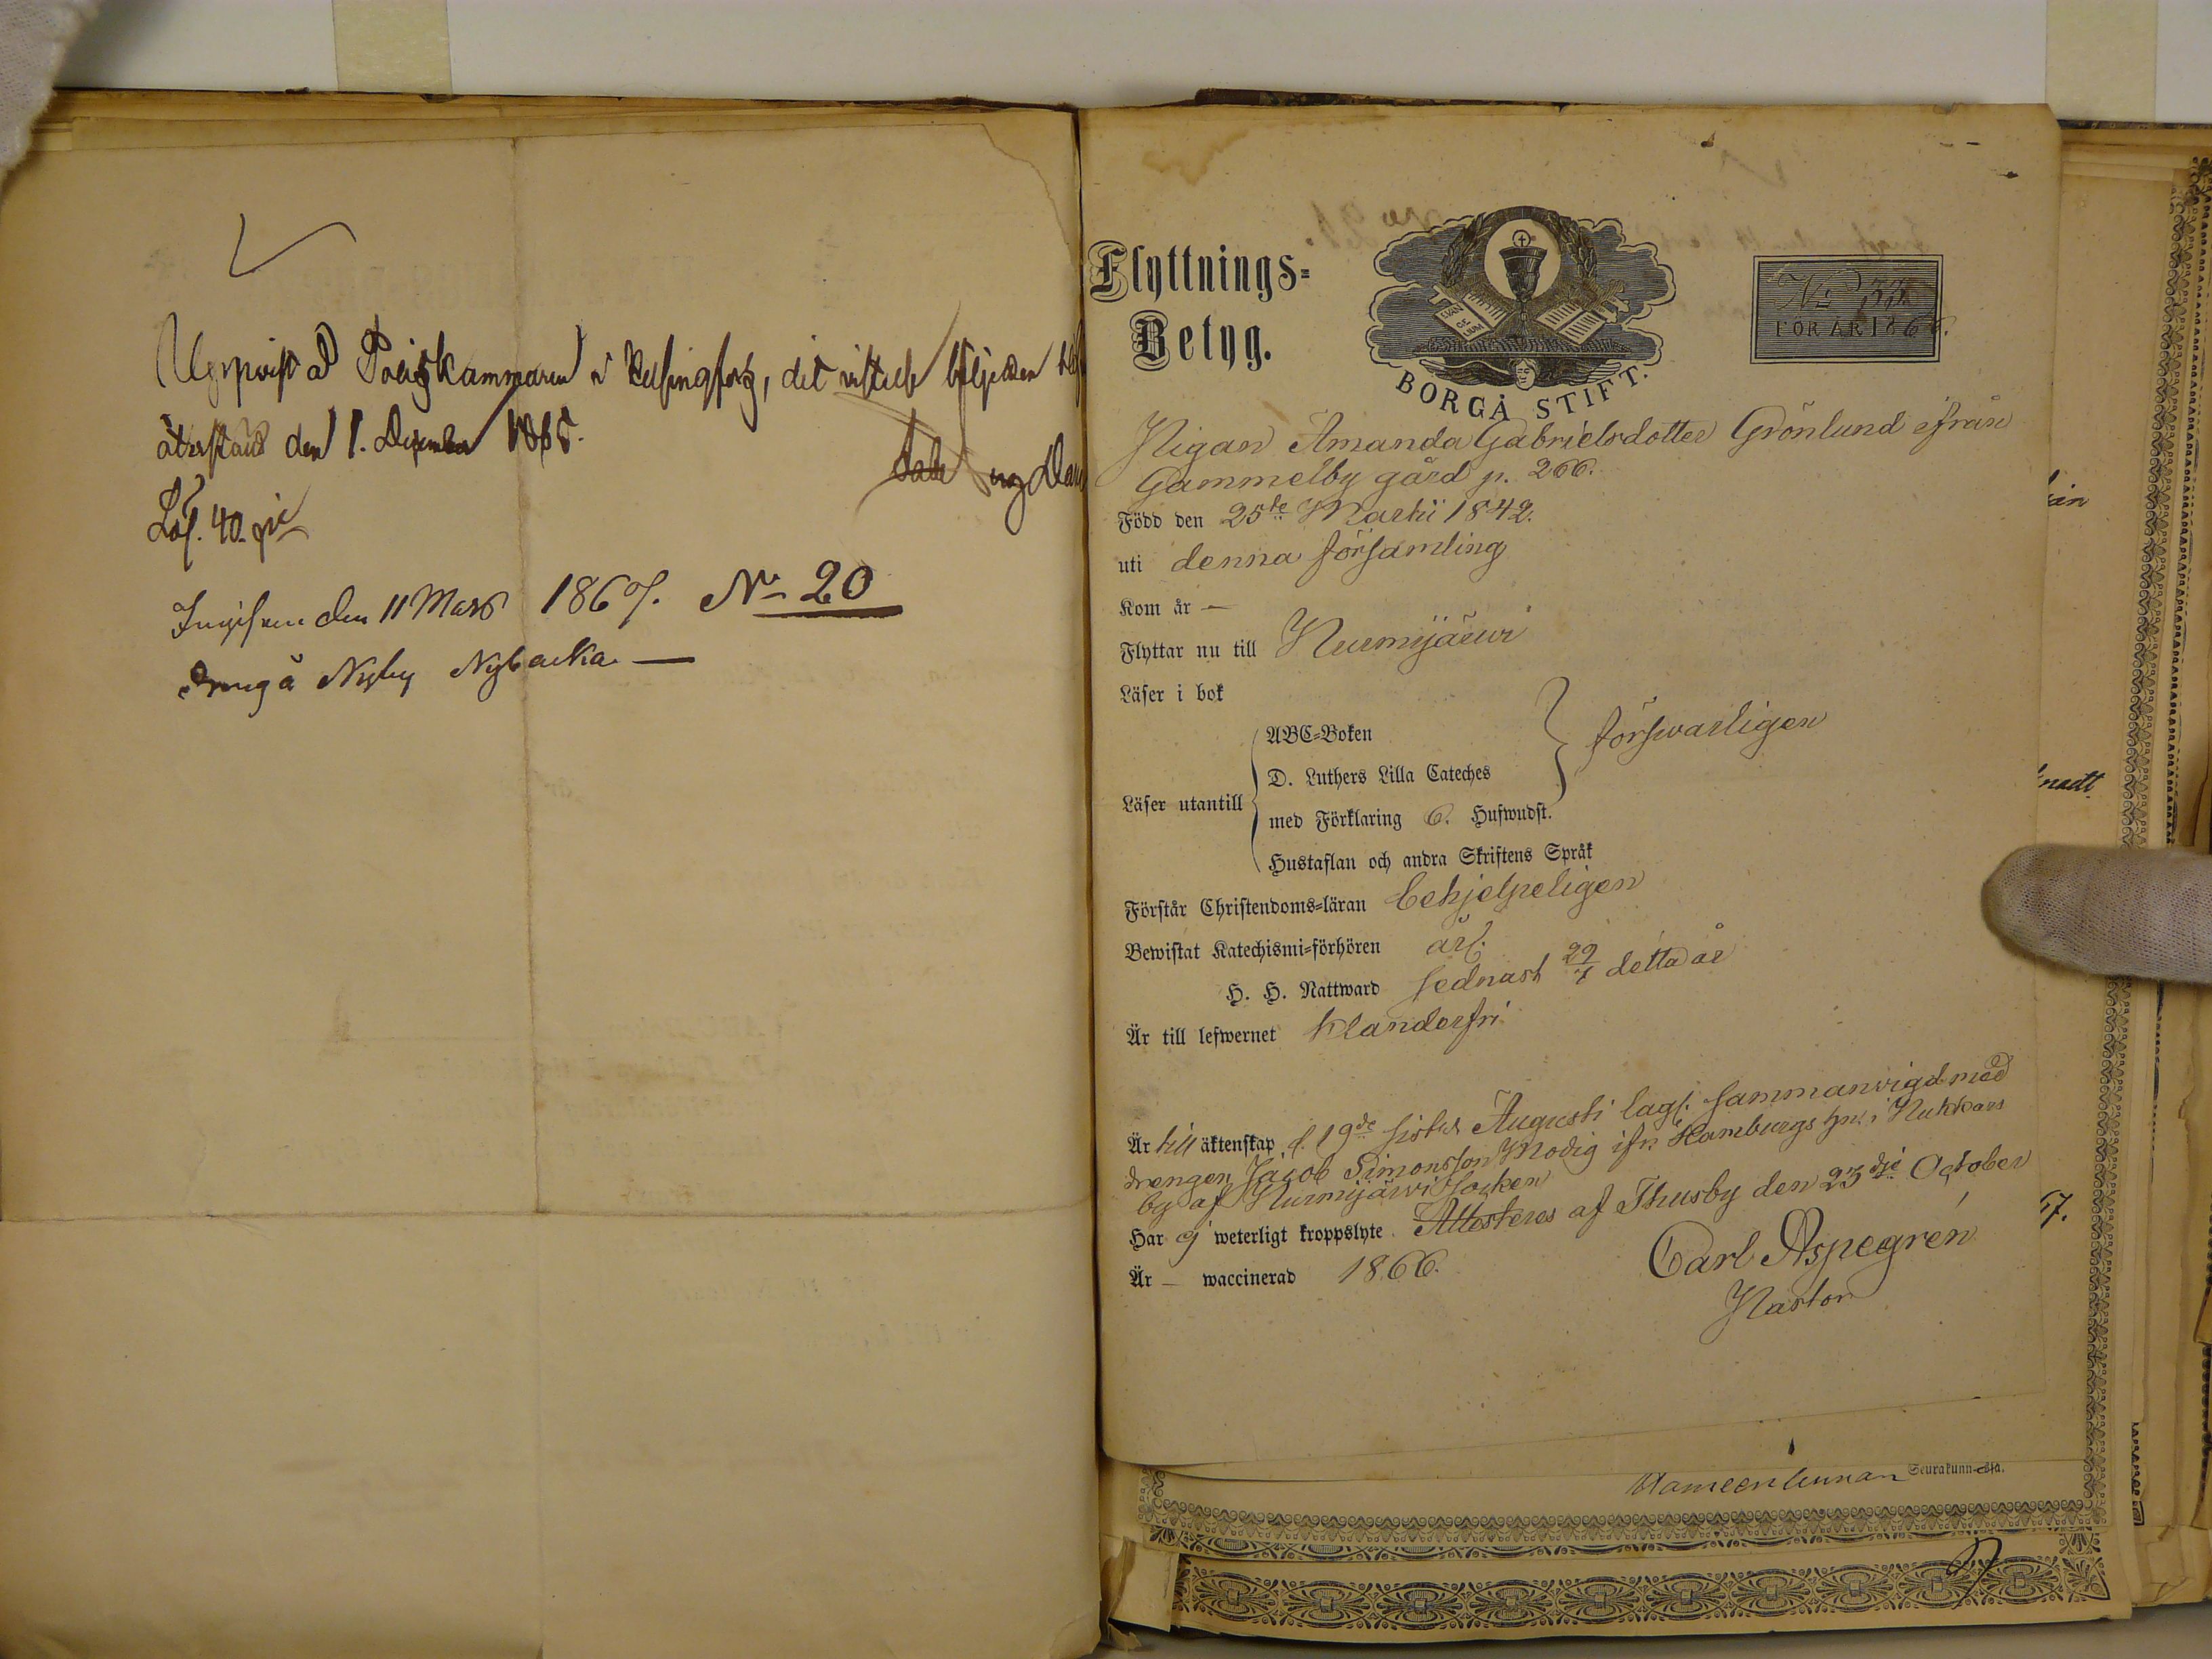 Uppvist å Poliskammaren i Helsingfors, det vistats
återstäld den 1. December 1865.
Lös. 40. pi
Ingifven den 11 Mars 1867. No 20
dreng å Nyby Nybacka
Flyttnings=
Betyg.
EVAN
GE
LIUM
BORGÅ STIFT.
No 33
FÖR ÅR 1866.
Pigan Amanda Gabrielsdotter Grönlund ifrån
Gammelby gård p. 266.
Född den 25te Martii 1842.
uti denna församling
Kom år —
Flyttar nu till Nurmijärwi
Läser i bok
ABC=Boken
D. Luthers Lilla Cateches
med Förklaring 6. Hufwudst.
Hustaflan och andra Skriftens Språk
Läser utantill
förswarligen
Förstår Christendoms=läran behjelpeligen
Bewistat Katechismi=förhören årl.
H. H. Nattward sednast 29/7 detta år
Är till lefwernet klanderfri
Är till äktenskap d. 19de sistl. Augusti lagl. sammanwigd med
drengen Jacob Simonsson Modig ifr. Hamburgs hn. i Nukkars
by af Nurmijärwi socken
Har ej weterligt kroppslyte. Attesteras af Thusby den 23dje October
Är — waccinerad 1866.
Carl Aspegrén
Pastor
nadt
67.
Hämeenlinnan Seurakunnasta.